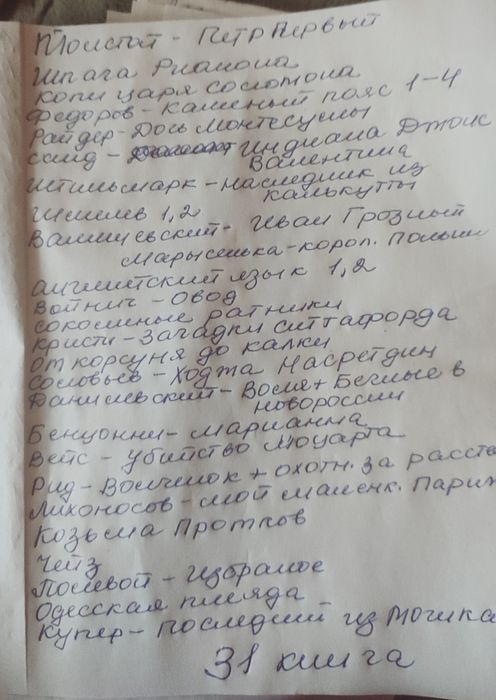 Толстой - Петр Первый
Шпага Рианона
Копи царя Соломона
Федоров - Каменый пояс 1-4
Райдер - Дочь Монтесумы
Санд - Индиана Джонс
Валентина
Штильмарк - Наследник из
Калькутты
Шишлев 1,2
Валишевский - Иван Грозный
Марысенька - корол. Польши
Английский язык 1,2
Войнич - Овод
Соколиные ратники
Кристи - Загадки Ситтафорда
От Корсуня до Калки
Соловьев - Ходжа Насретдин
Данилевский - Воля + Беглые в
Новороссии
Бенцонни - Марианна
Вейс - Убийство Моцарта
Рид - Волчонок + охотн. за расте
Лихоносов - Мой маленк. Париж
Козьма Протков
Чейз
Полевой - Избраное
Одесская плеяда
Купер - Последний из Могика
31 книга